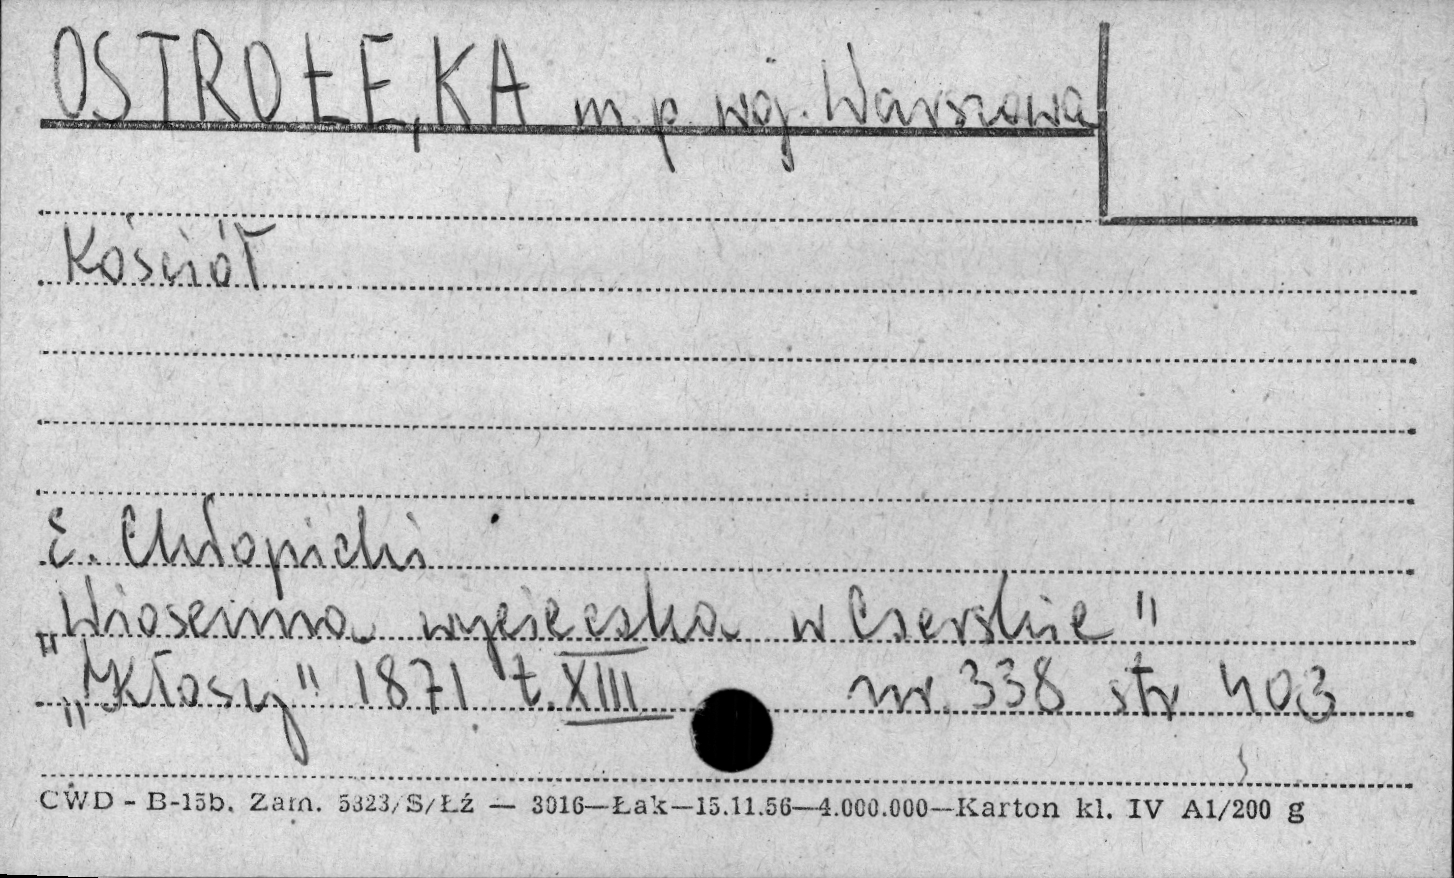 OSTROŁĘKA m.p. woj. Warszawa
Kościół
E. Chłopicki
„Wiosenna wycieczka w Czerskie"
„Kłosy" 1871 t. XIII nr. 338 str 403
CWD - B-15b. Zam. 5323/S/Łź — 3016—Łak—15.11.56—4.000.000—Karton kl. IV A1/200 g